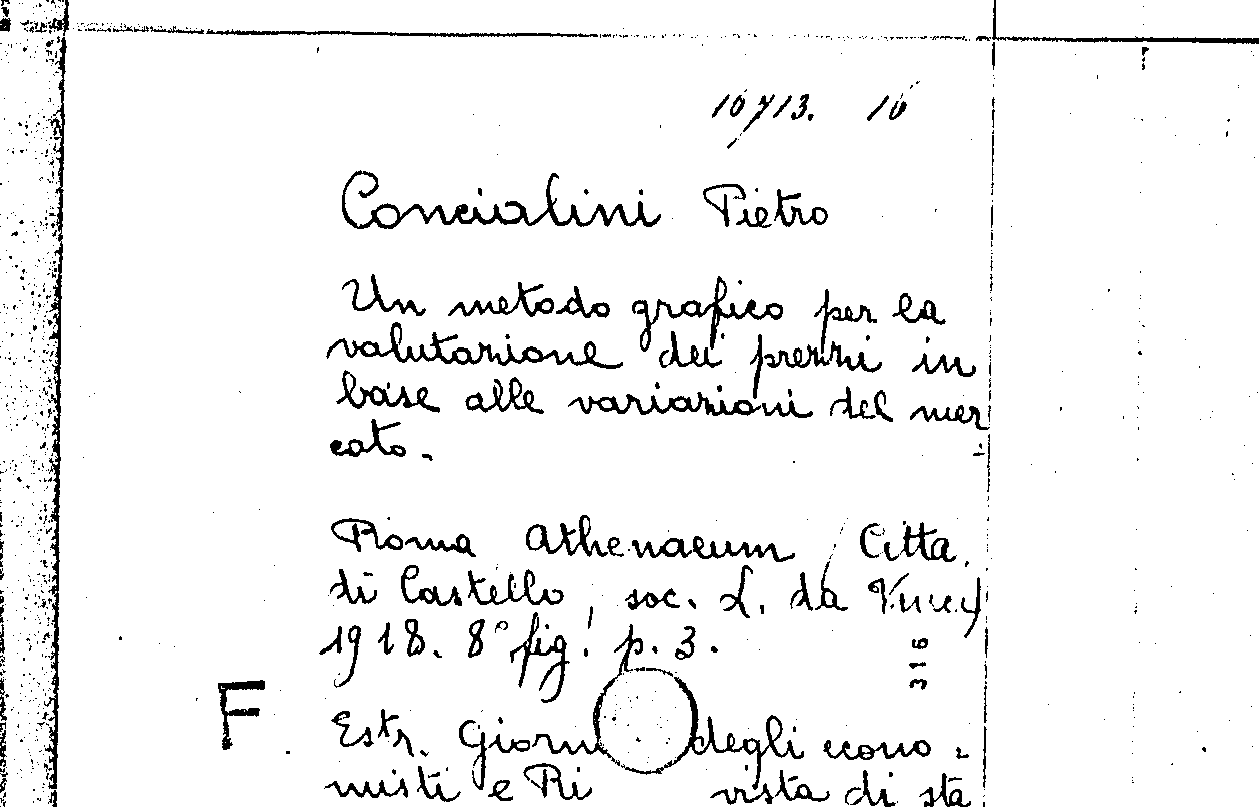 10713. 10
Concialini Pietro
Un metodo grafico per la
valutazione dei prezzi in
base alle variazioni del mer
cato.
Roma Athenaeum (Citta
di Castello, soc. L. da Vinci)
1918. 8° fig. p. 3.
316
F
Estr. Giorn degli econo=
misti e Ri vista di sta